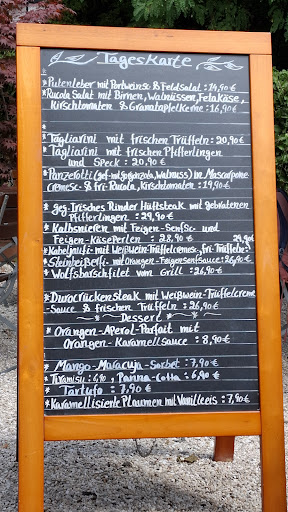 Tageskarte
* Putenleber mit Portweinso & Feldsalat : 14,90 €
* Rucola Salat mit Birnen, Walnüssen, Fetakäse,
Kirschtomaten & Granatapfelkerne : 16,90 €
* Tagliarini mit frischen Trüffeln : 20,90 €
* Tagliarini mit frischen Pfifferlingen
und Speck : 20,90 €
* Panzerotti (gef. mit Gorgonzola, Walnuss) in Mascarpone
cremeso & fri. Rucola, Kirschtomaten : 19,90 €
* geg. frisches Rinder Hüftsteak mit gebratenen
Pfifferlingen : 29,90 €
* Kalbsnieren mit Feigen-Senfso und
Feigen-käseperlen : 28,90 €
* Kabeljaufi. mit Weißwein-Trüffelcremeso, fri. Trüffel : 29,90 €
* Steinbeißerfi. mit Orangen-Feigensenfsauce : 26,90 €
* Wolfsbarschfilet vom Grill : 26,90 €
* Durocrückensteak mit Weißwein-Trüffelcreme
-Sauce & frischen Trüffeln : 26,90 €
Dessert
* Orangen-Aperol-Parfait mit
Orangen-Karamellsauce : 8,90 €
* Mango-Maracuja-Sorbet : 7,90 €
* Tiramisu : 6,90, Panna-Cotta : 6,90 €
* Tartufo : 7,90 €
* Karamellisierte Pflaumen mit Vanilleeis : 7,90 €